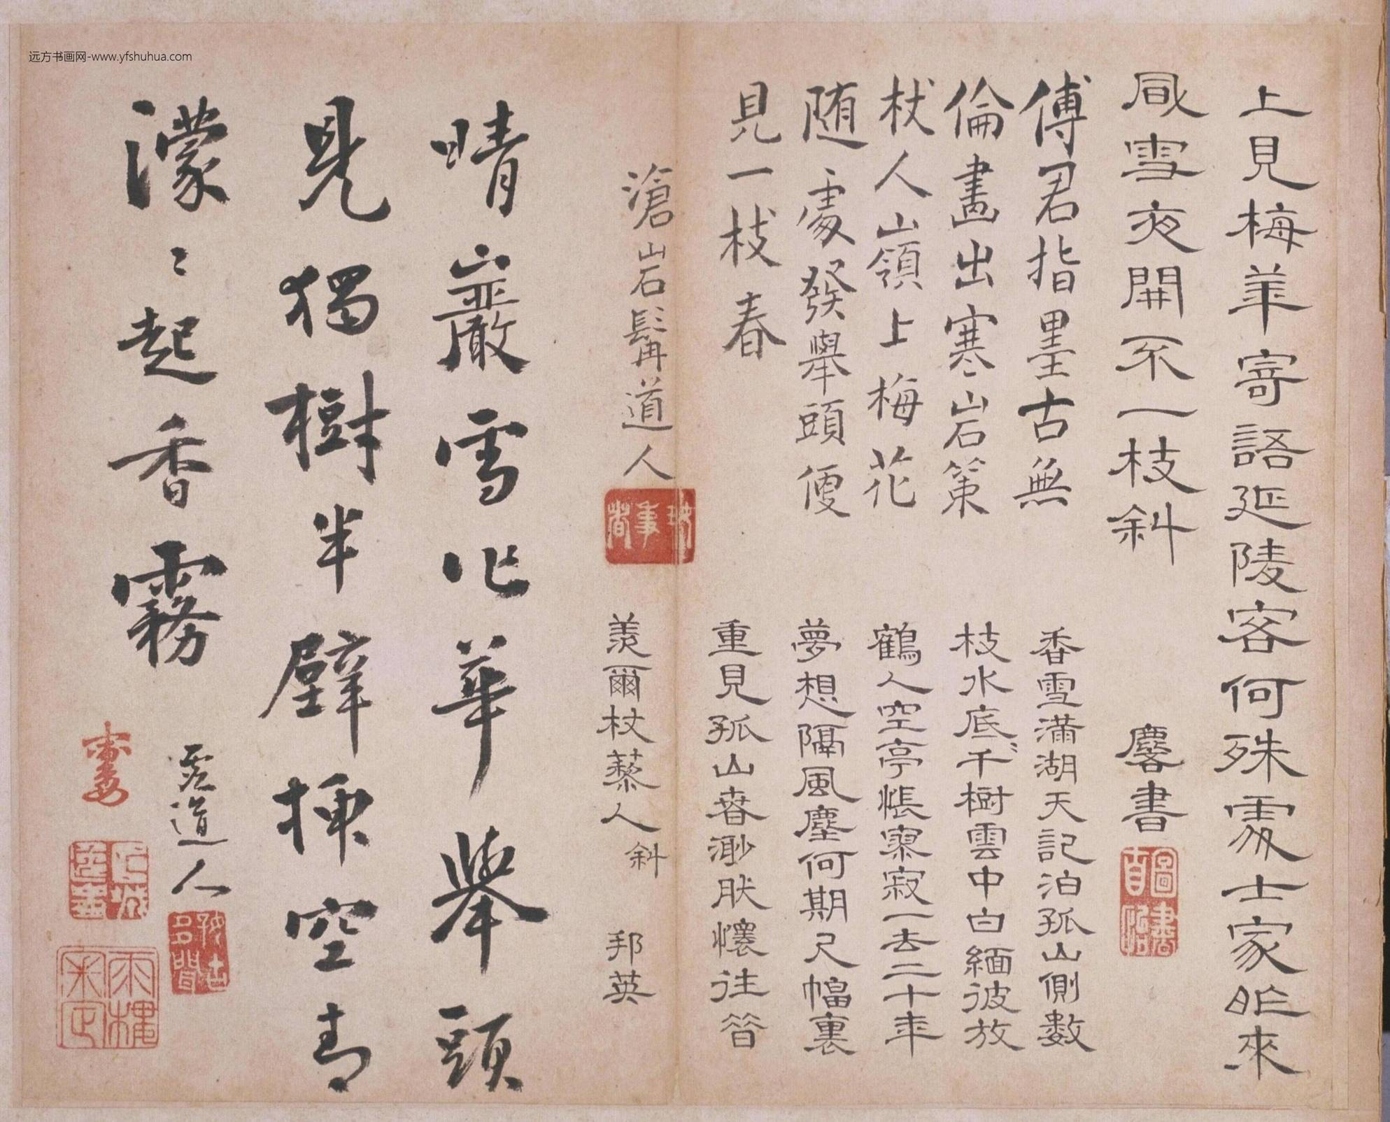 远方书画网-www.yfshuhua.com
上見梅華寄語延陵客何殊處士家昨來
風雪夜開不一枝斜
馨書
傅君指墨古無
倫畫出寒岩策
杖人山嶺上梅花
随處發舉頭便
見一枝春
滄岩髯道人
香雪滿湖天記泊孤山側數
枝水底千樹雲中白緬彼放
鶴人空亭悵寥寂一去二十年
夢想隔風塵何期尺幅裏
重見孤山春渺然懷往昔
羨爾杖藜人斜
邦英
晴巖雪作華舉頭
見獨樹半壁掃空青
濛〻起香霧
道人